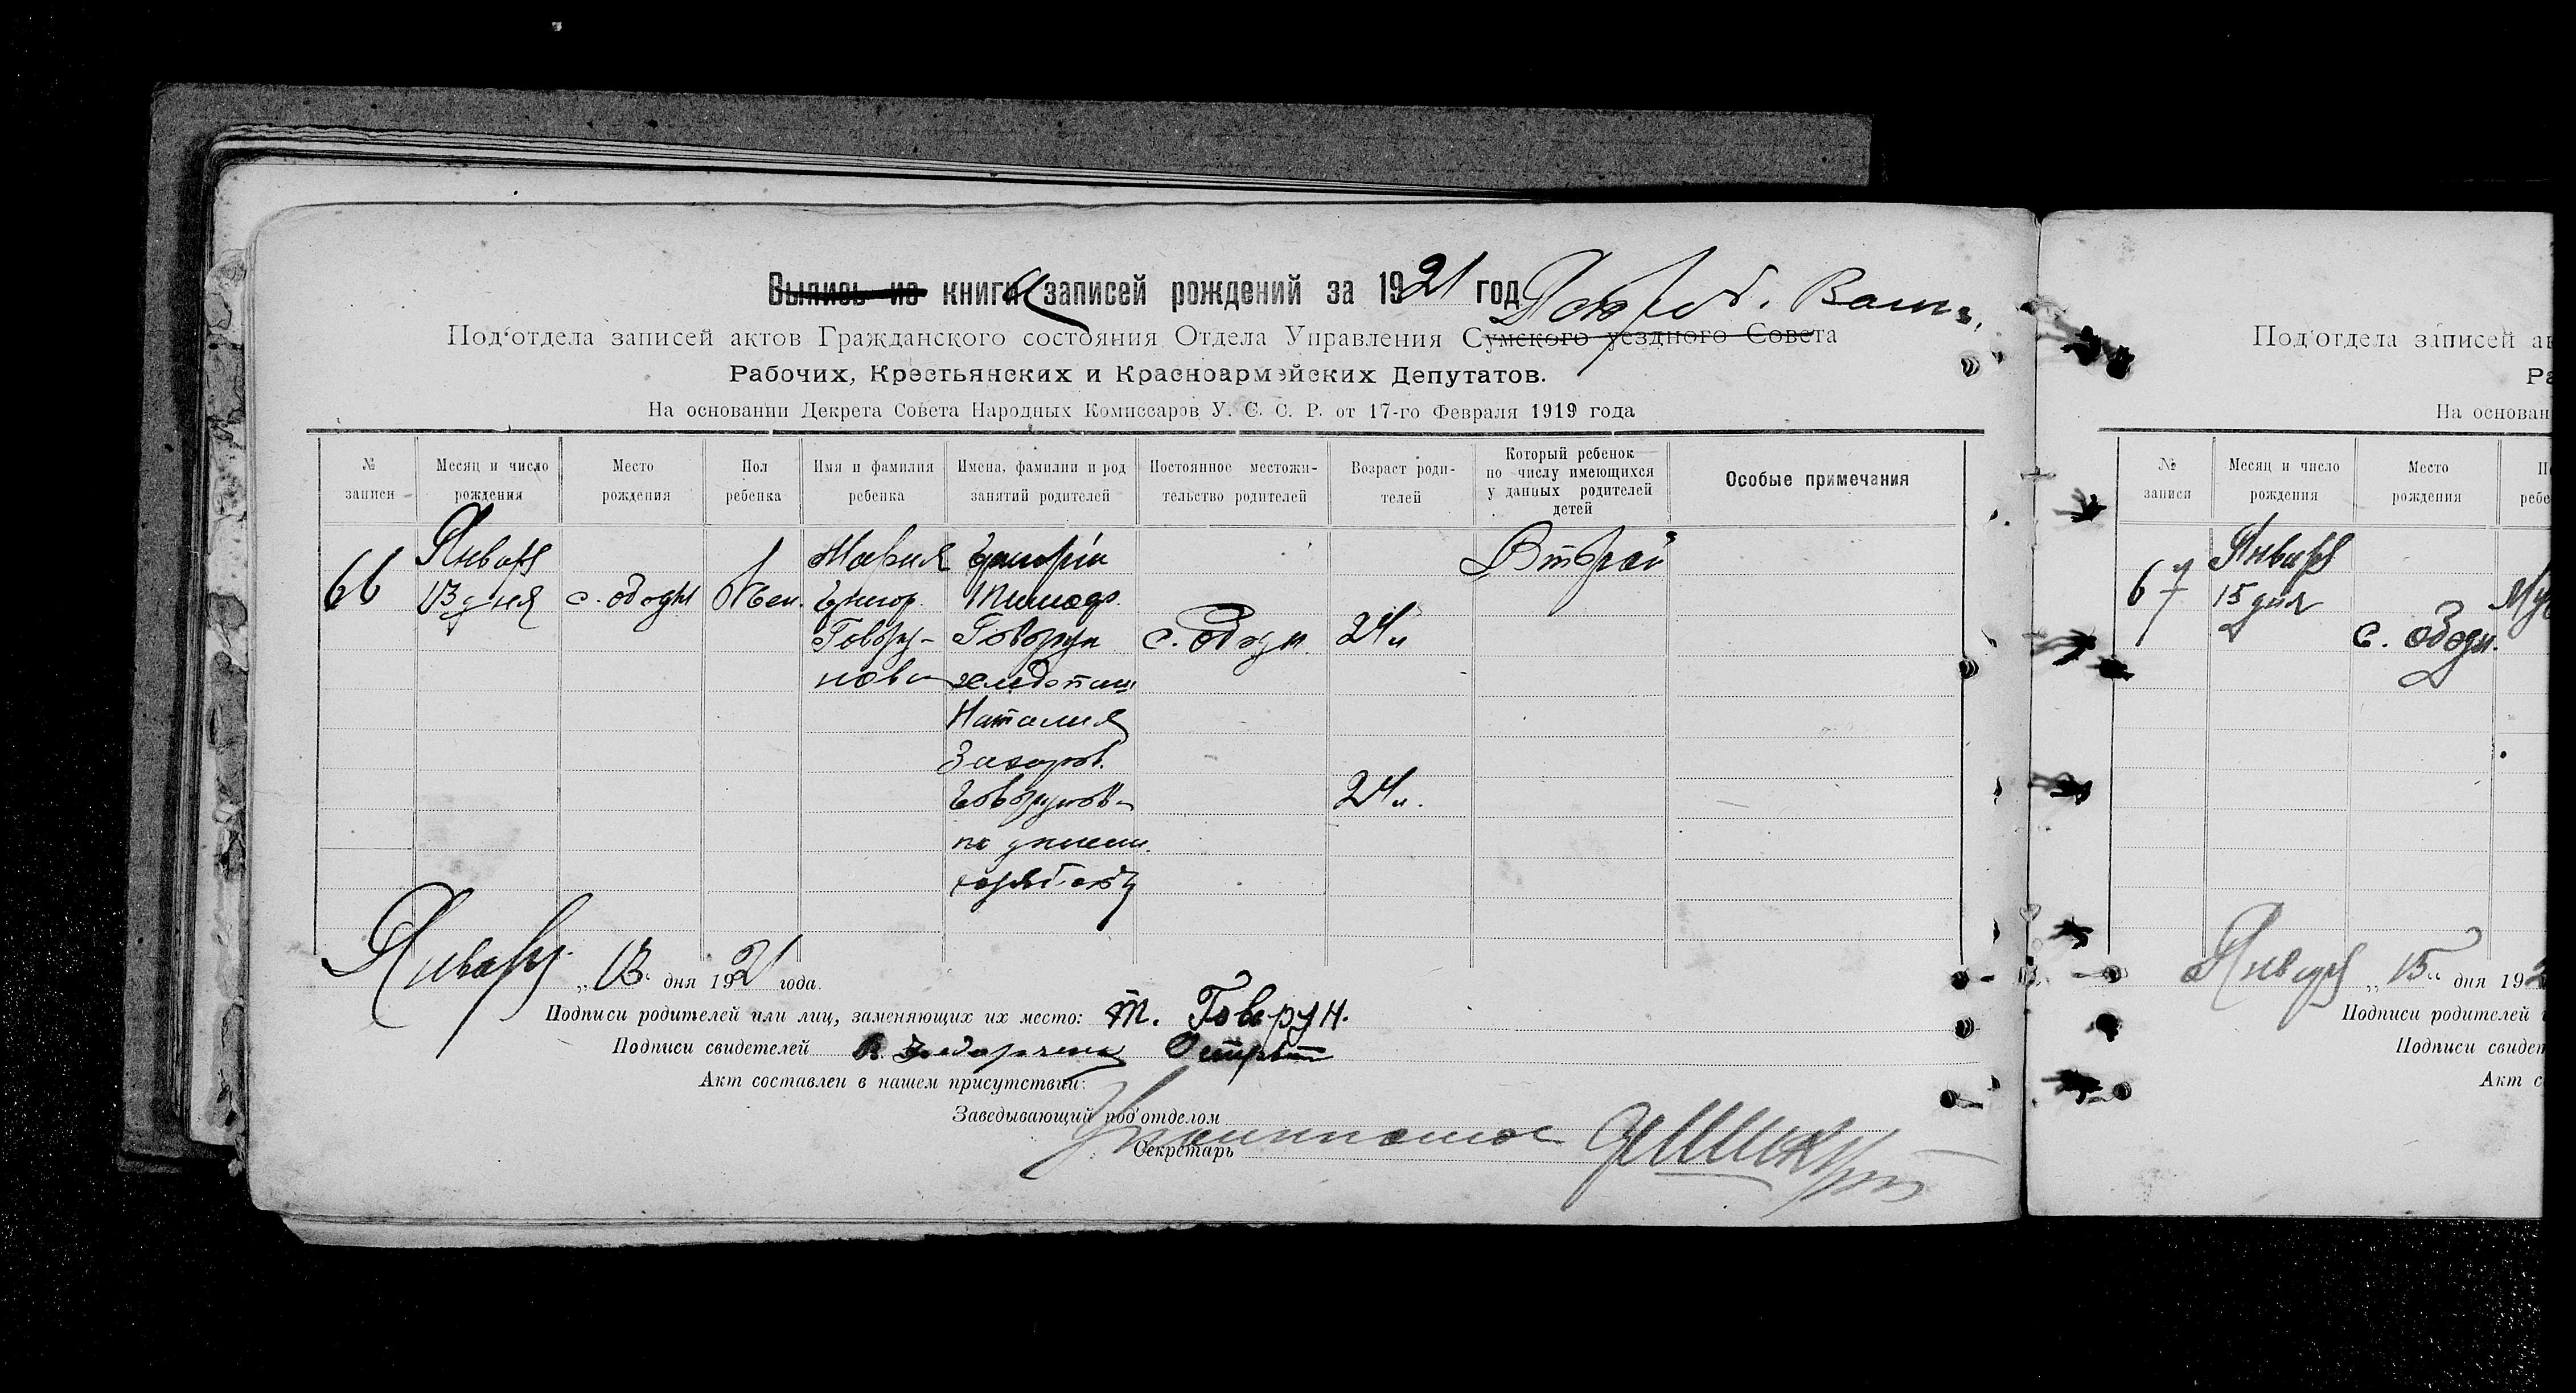 Выпись из книга записей рождений за 1921 год
Под'отдела записей актов Гражданского состояния Отдела Управления Сумского уездного Совета
Рабочих, Крестьянских и Красноармейских Депутатов.
На основании Декрета Совета Народных Комиссаров У. С. С. Р. от 17-го Февраля 1919 года
№ записи
Месяц и число рождения
Место рождения
Пол ребенка
Имя и фамилия ребенка
Имена, фамилии и род занятий родителей
Постоянное местожительство родителей
Возраст родителей
Который ребенок по числу имеющихся у данных родителей детей
Особые примечания
66
Января
13 дня
Жен.
Мария
Григор.
Говору-
нова
Григорій
Тимоф.
Говорун
хлебопаш
Наталия
Захаров.
Говорунова
по домаш.
24
24
Второй
Января „13“ дня 1921 года.
Подписи родителей или лиц, заменяющих их место: Т. Говорун.
Подписи свидетелей
Акт составлен в нашем присутствии:
Заведывающий под'отделом
Секретарь
Под'отдела записей ак
Ра
На основан
№ записи
Месяц и число рождения
Место рождения
По
ребе
67
Января
15 дня
Муж
Января „15“ дня 192
Подписи родителей и
Подписи свидет
Акт с